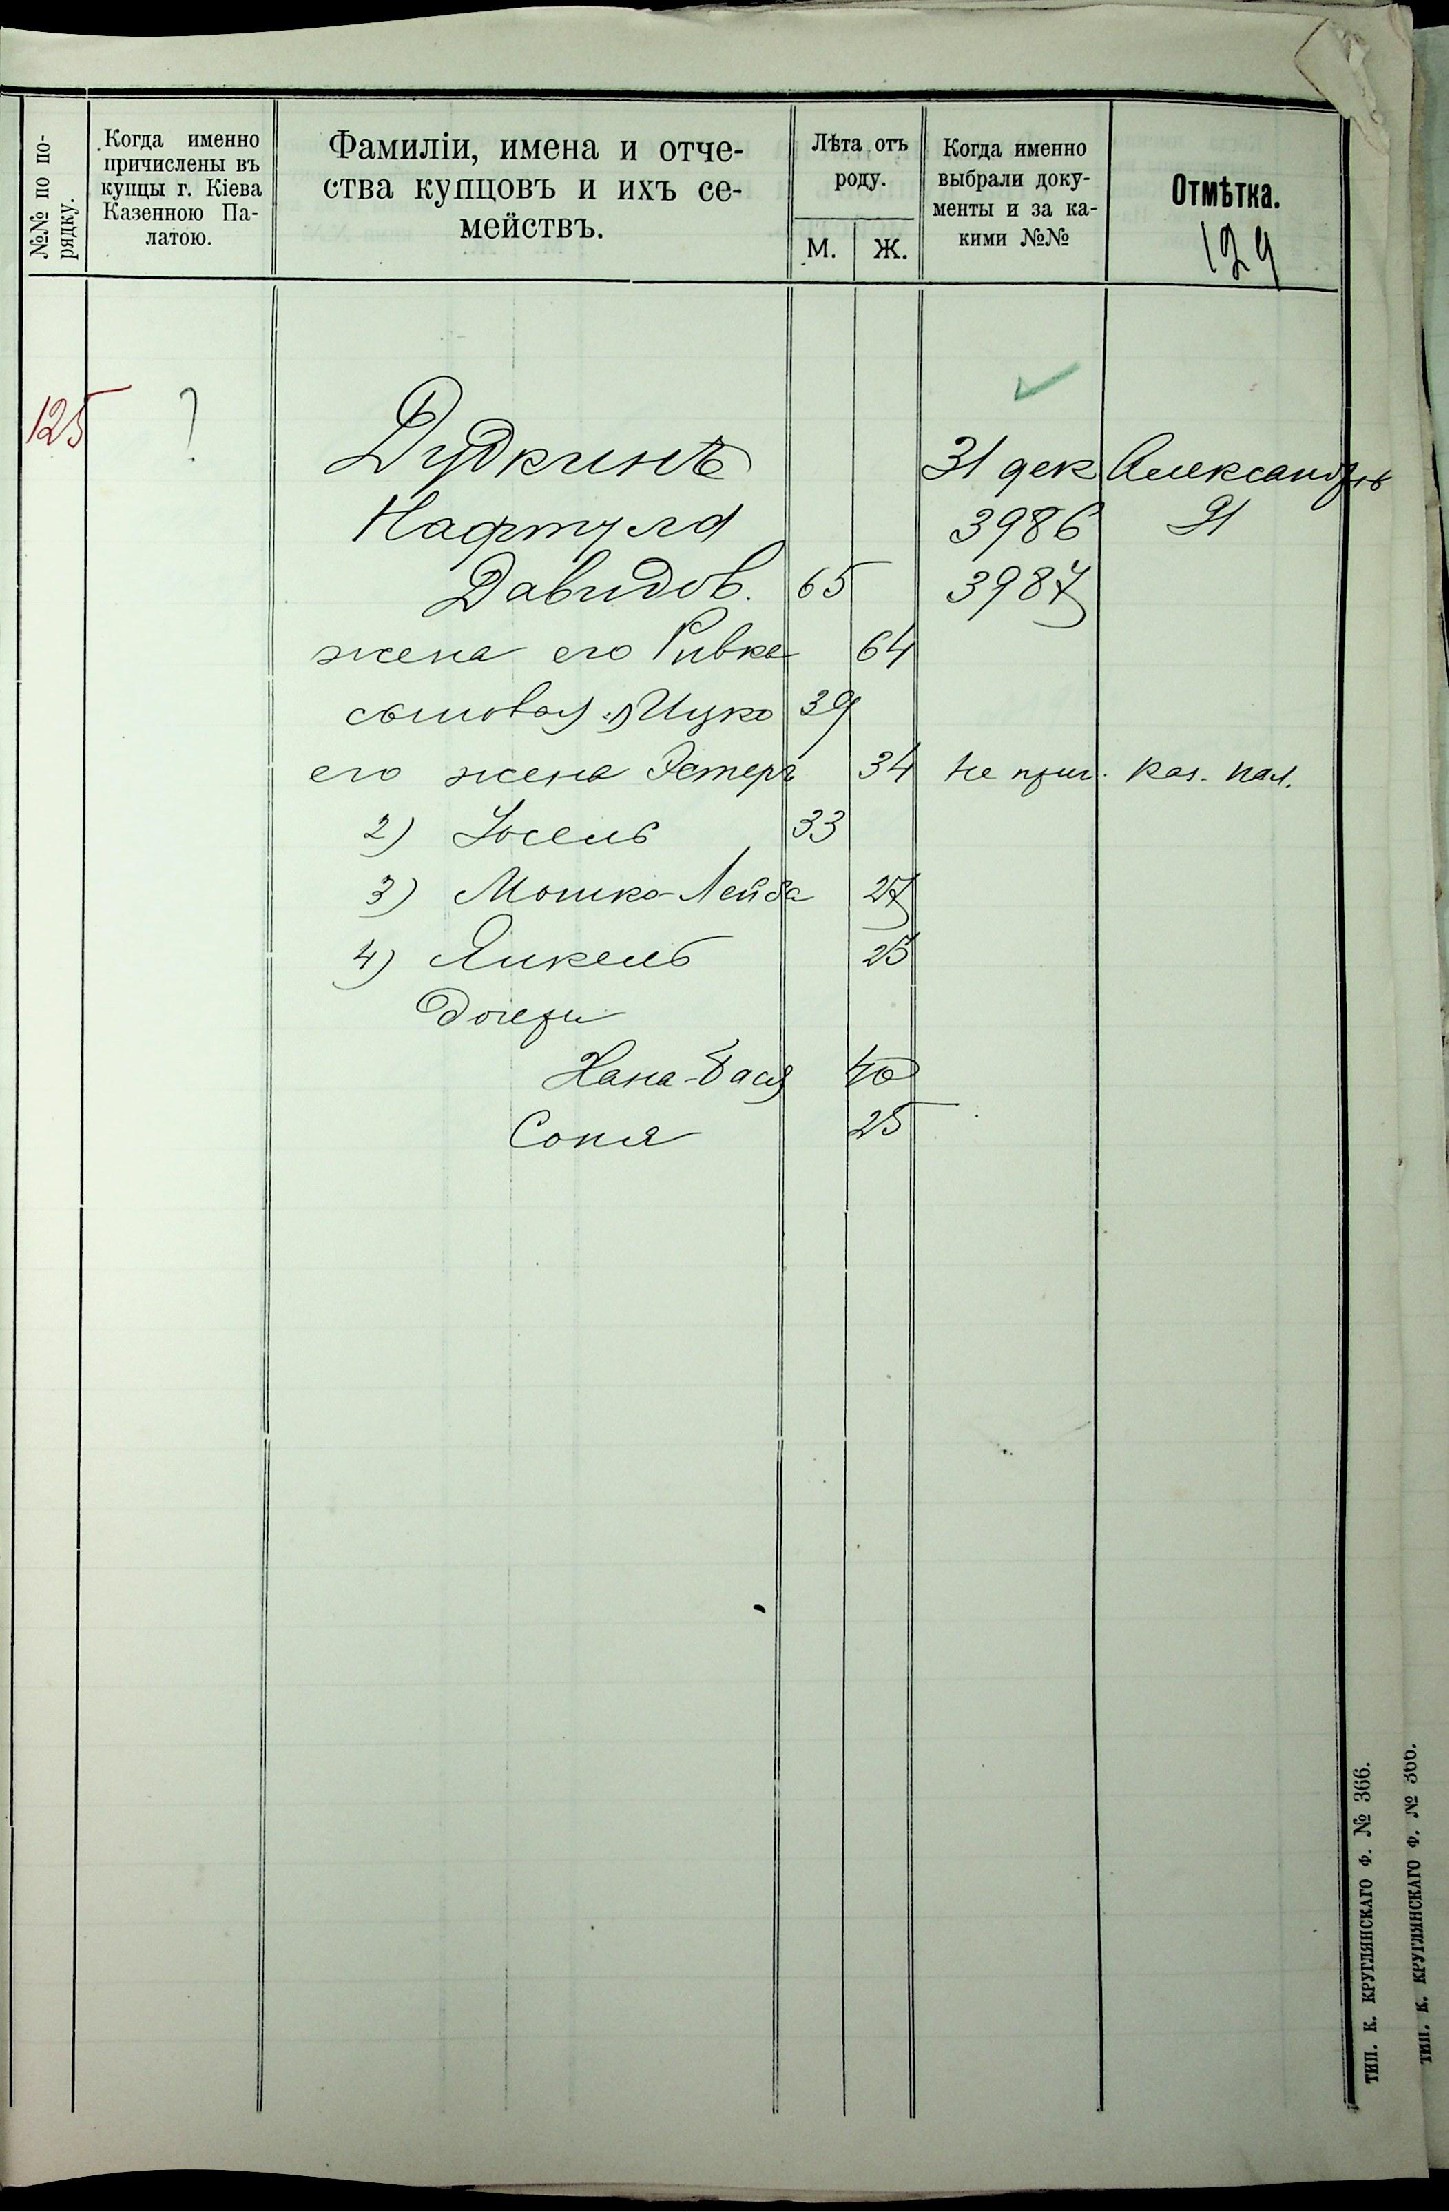 №№ по по-
рядку.
Когда именно
причислены въ
купцы г. Кіева
Казенною Па-
латою.
Фамиліи, имена и отче-
ства купцовъ и ихъ се-
мействъ.
Лѣта отъ
роду.
М. Ж.
Когда именно
выбрали доку-
менты и за ка-
кими №№
Отмѣтка.
129
125 ? Дудкинъ 31 дек Александров
Нафтула 3986 21
Давидов. 65 3987
жена его Ривка 64
сыновья 1) Ицко 39
его жена Эстеръ 34 не прич. Каз. Пал.
2) Іосель 33
3) Мошко-Лейба 27
4) Янкель 25
Дочери
Хана-Бася 40
Соня 25
ТИП. К. КРУГЛЯНСКАГО Ф. № 366.
ТИП. К. КРУГЛЯНСКАГО Ф. № 366.